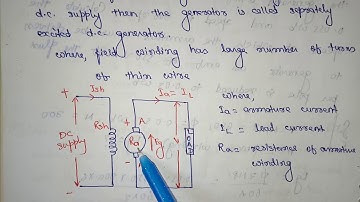 d.c. supply then the generator is called seprately
excited d.c. generator.
where, field winding has large number of turns
of thin wire
Ish
Ia = IL
+
+
A
DC
supply
Rsh
Ra
Eg
LOAD
-
-
where,
Ia = armature current
IL = load current
Ra = resistances of armature
winding